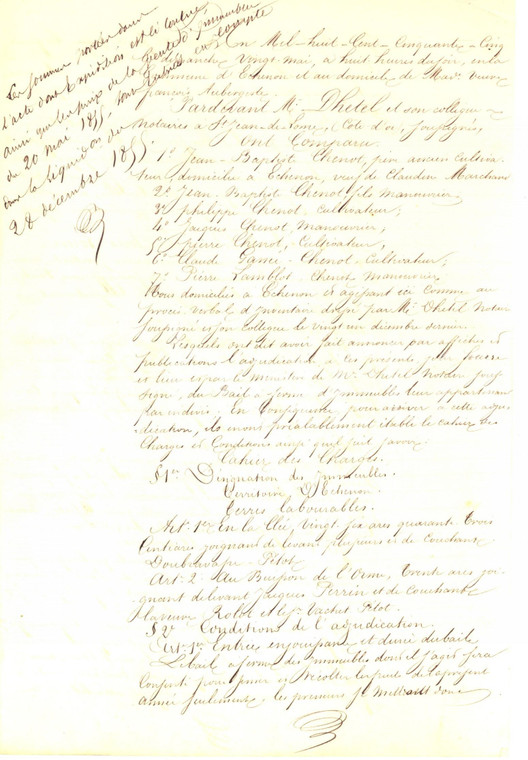 Les sommes portées dans
l'acte dont Expédition est ci contre
ainsi que les prix de la vente d'immeubles
du 20 mai 1855, sont entrés en compte
dans la liquidation du
28 décembre 1855
L'an Mil-huit-Cent-Cinquante-Cinq
le dimanche vingt mai, à huit heures du soir, en la
Commune d'Echenon et au domicile de Mad. Veuve
françois
Pardevant Me Dhetel et son collègue
notaires à St Jean-de-Losne, Côte d'or, soussignés,
Ont Comparu:
1° Jean-Baptiste Chenot, père ancien cultiva-
teur domicilié à Echenon, veuf de Claudine Marchand
2° Jean Baptiste Chenot fils Manouvrier
3° philippe Chenot, cultivateur,
4° Jacques Chenot, Manouvrier,
5° pierre Chenot, Cultivateur,
6° Claude Chenot, Cultivateur,
7° Pierre Lamblot-Chenot Manouvrier
tous domiciliés à Echenon et agissant ici comme au
procès verbal d'inventaire dressé par Me Dhetel Notaire
soussigné et son Collègue le vingt un décembre dernier
Lesquels ont dit avoir fait annoncer par affiches et
publications l'adjudication à ces présents jour
et lieu et par le Ministère de Me Dhetel Notaire sous-
signé, du Bail à ferme d'Immeubles leur appartenant
par indivis; En Conséquence, pour arriver à cette adju-
dication, ils en ont préalablement établi le cahier des
Charges et Conditions ainsi qu'il suit savoir
Cahier des Charges.
§ 1er Désignation des Immeubles.
Territoire d'Echenon.
Terres labourables.
Art. 1er En la Clée, Vingt six ares quarante trois
Centiares joignant de levant plusieurs et de Couchant
Pitot
Art. 2. Au Buisson de l'Orme, trente ares joi-
gnant de levant Jacques Perrin et de couchant
la veuve Robot et Vachet Pitot.
§ 2e Conditions de l'adjudication.
Art. 1er Entrée en jouissance et durée du bail
Le bail à ferme des immeubles dont il s'agit sera
Consenti pour jouir et récolter les fruits de la présente
Année seulement, les preneurs se